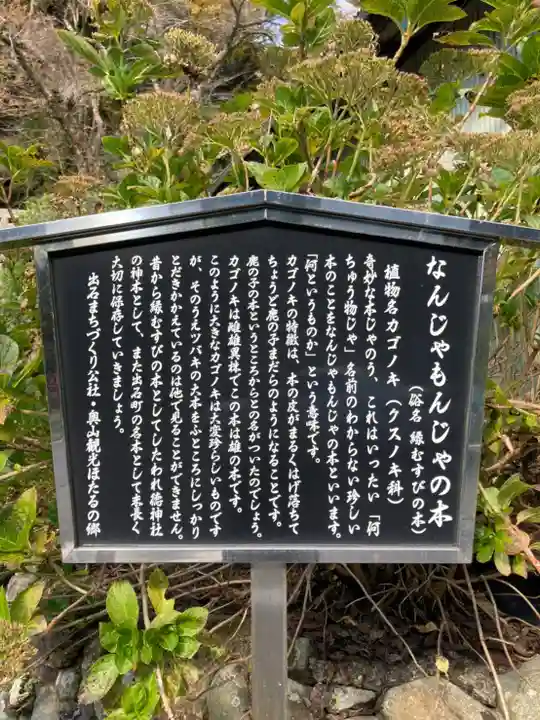 なんじゃもんじゃの木
(俗名 縁むすびの木)
植物名カゴノキ(クスノキ科)
奇妙な木じゃのう、これはいったい「何
ちゅう物じゃ」名前のわからない珍しい
木のことをなんじゃもんじゃの木といいます。
「何というものか」という意味です。
カゴノキの特徴は、木の皮がまるくはげ落ちて
ちょうど鹿の子まだらのようになることです。
鹿の子の木というところからこの名がついたのでしょう。
カゴノキは雌雄異株でこの木は雄の木です。
このように大きなカゴノキは大変珍らしいものです
が、そのうえツバキの大木をふところにしっかり
とだきかかえているのは他で見ることができません。
昔から縁むすびの木としてしたわれ徳神社
の神木として、また出石町の名木として末長く
大切に保存していきましょう。
出石まちづくり公社・奥山観光ほたるの郷